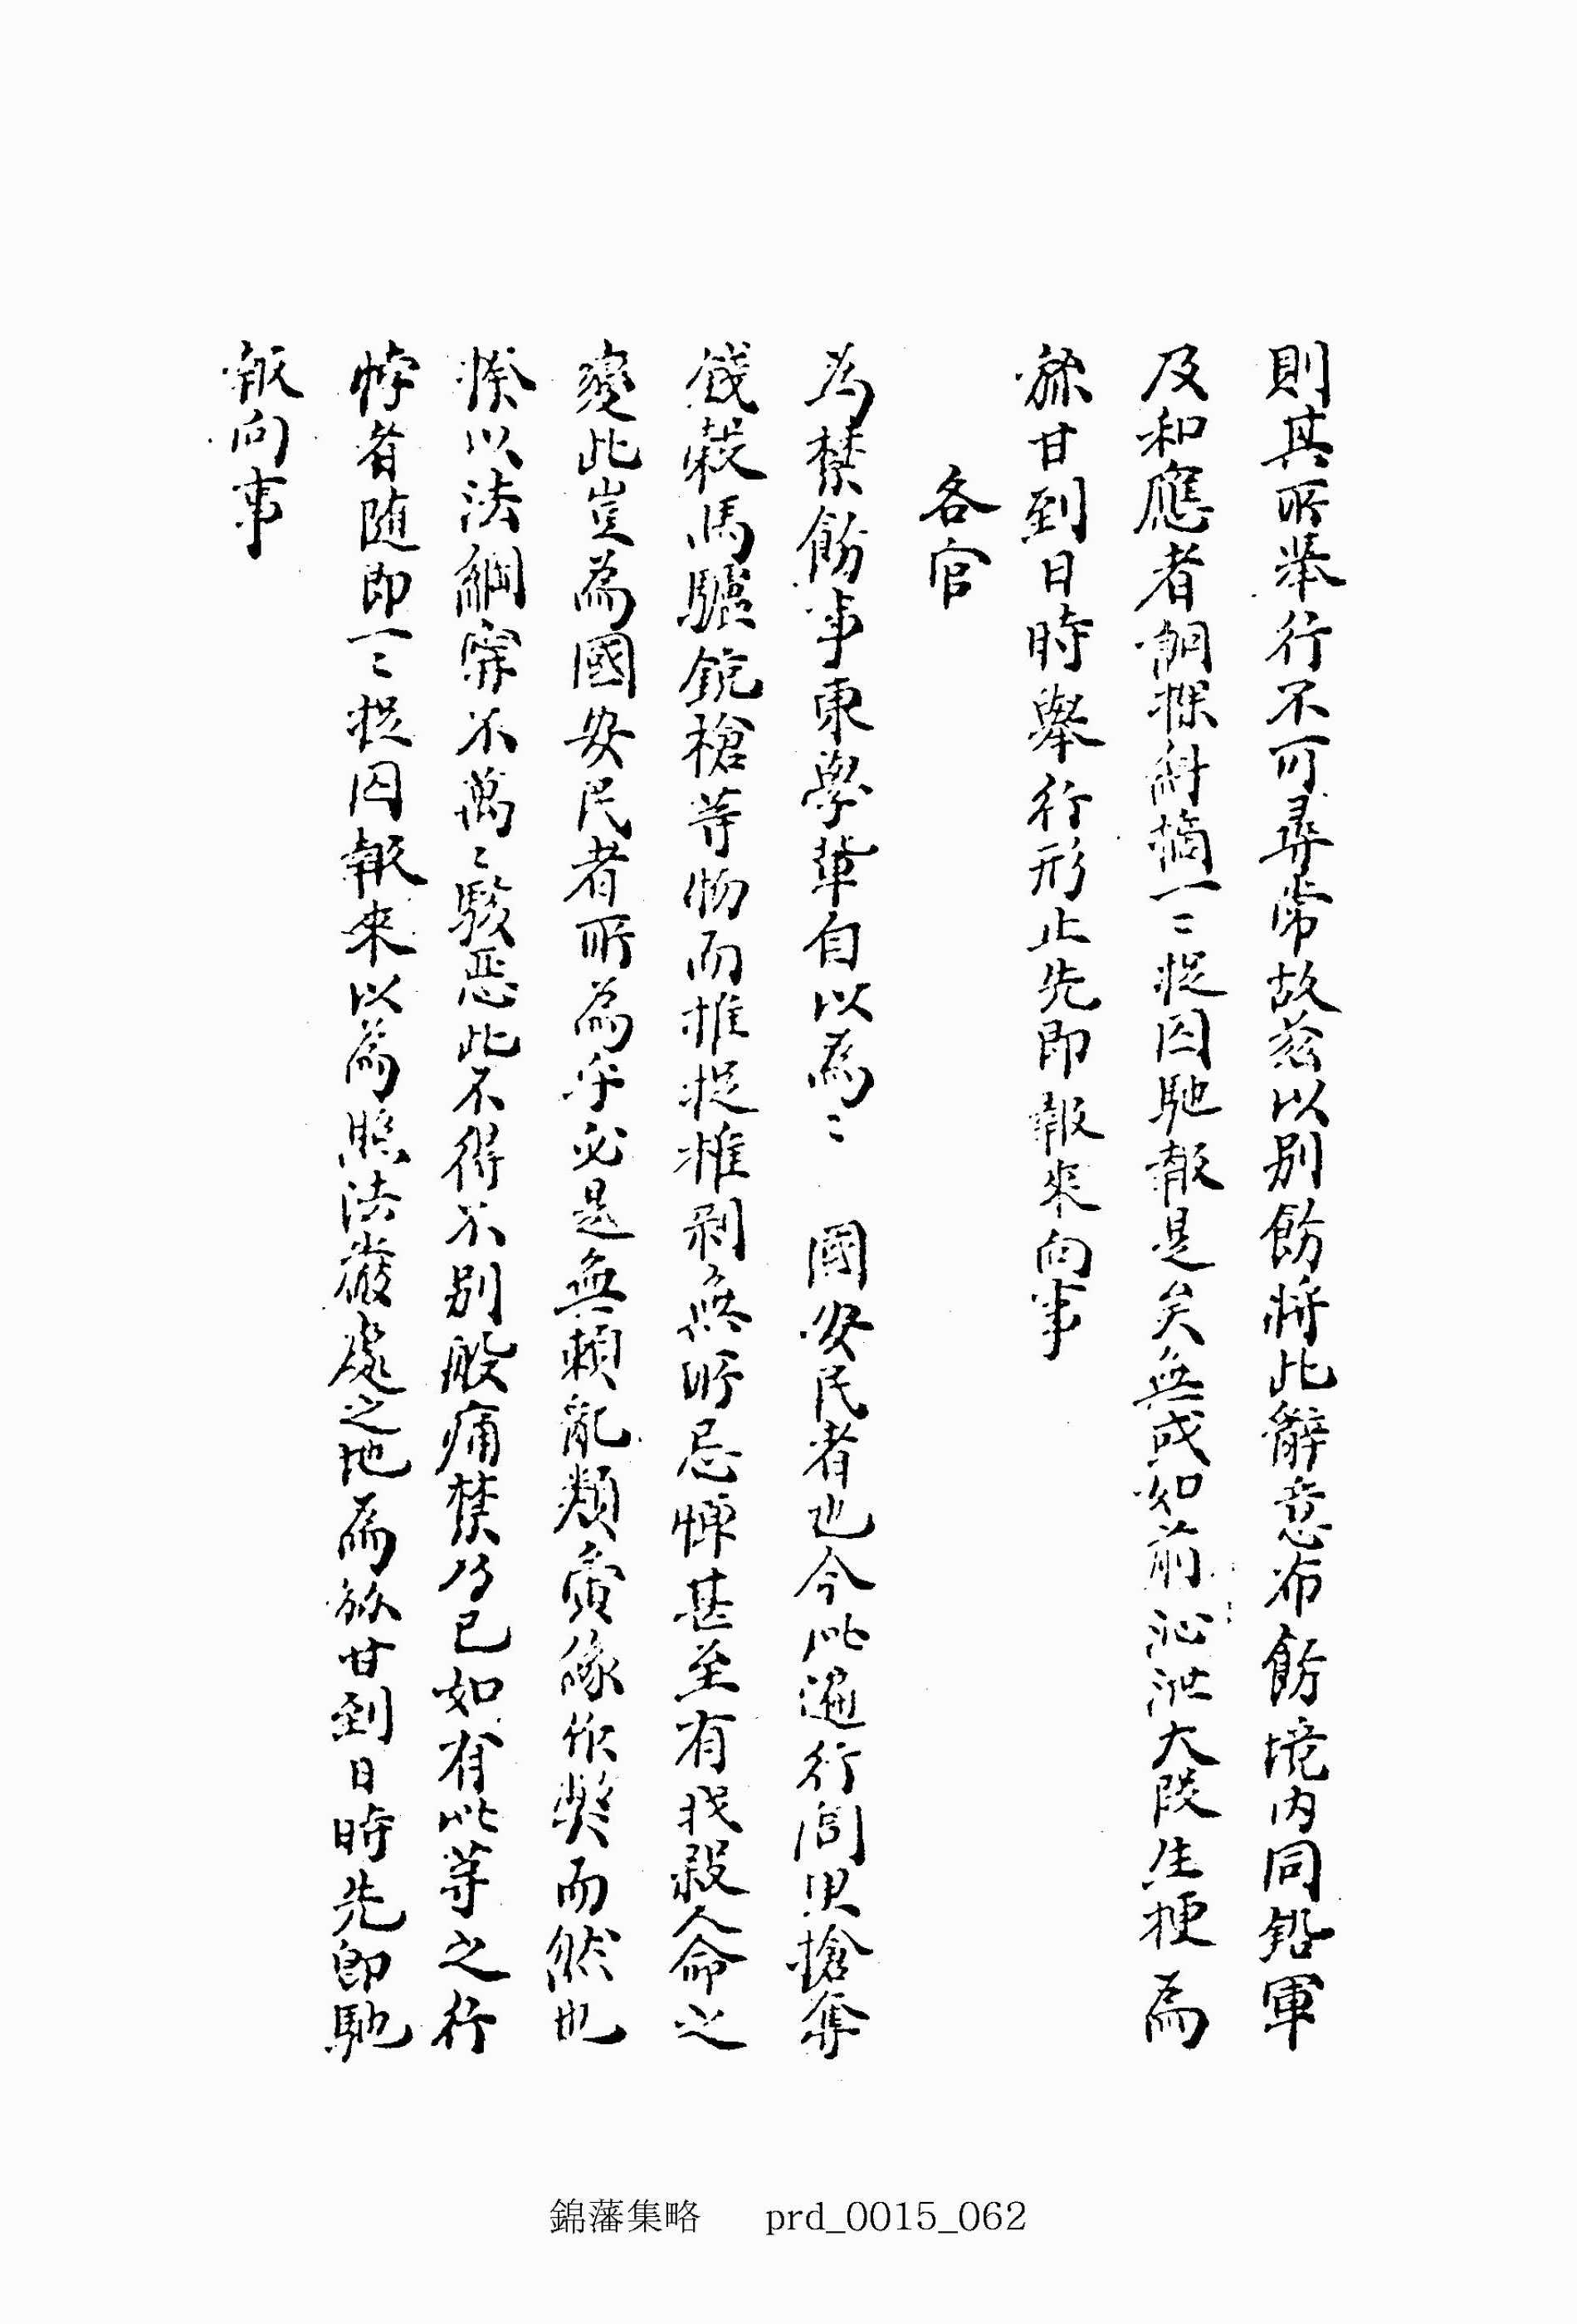 則其所举行不可尋常故玆以別飭將此辭意布飭境内同鉛軍
及和應者詗探糾摘一〻捉囚馳報是矣無或如前沁泄大段生梗爲
旀甘到日時擧行形止先卽報来向事
各官
为禁飭事東學軰自以爲〻 國安民者也今此遍行閭里搶奪
錢穀馬驢銃槍等物而推捉推剥無所忌憚甚至有戕殺人命之
變此豈爲國安民者所爲乎必是無頼亂類夤緣作獘而然也
揆以法綱寧不萬〻駭惡此不得不别般痛禁乃已如有此等之行
悖者随即一〻捉囚報来以爲照法嚴處之地爲旀甘到日時先卽馳
報向事
錦藩集略 prd_0015_062